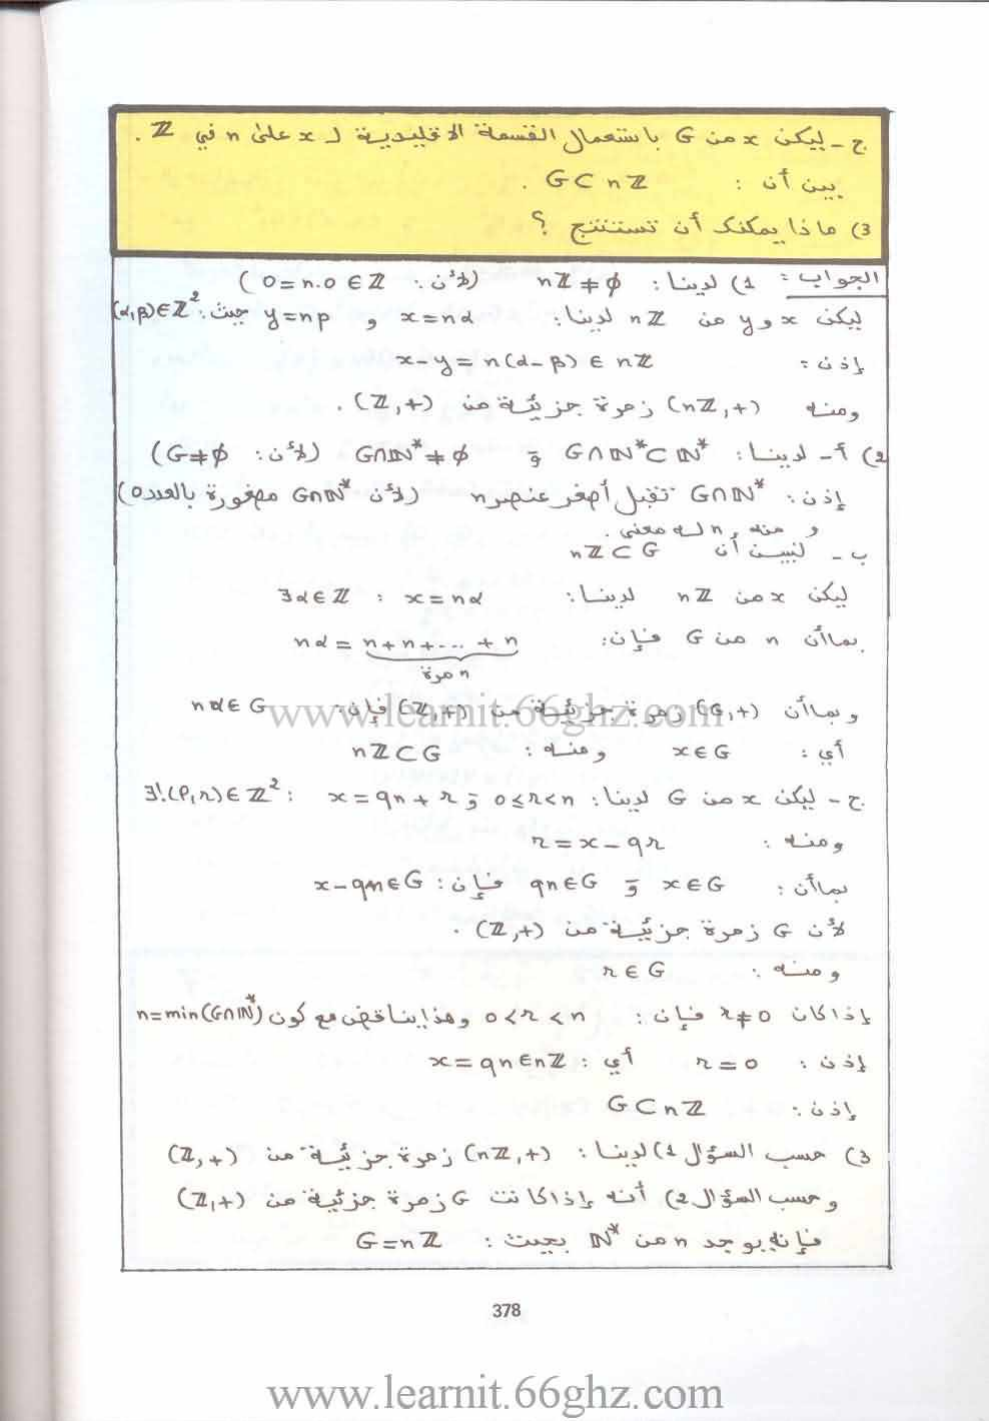 ج - ليكن x من G باستعمال القسمة الاقليدية لـ x على n في ℤ .
بين أن : G ⊂ nℤ .
3) ماذا يمكنك أن تستنتج ؟
الجواب : 1) لدينا : nℤ ≠ ∅ (لأن : 0 = n.0 ∈ ℤ )
ليكن x و y من nℤ لدينا : x = nα و y = nβ حيث : (α,β) ∈ ℤ²
إذن : x - y = n(α - β) ∈ nℤ
ومنه (nℤ,+) زمرة جزئية من (ℤ,+) .
2) أ - لدينا : G∩ℕ* ⊂ ℕ* و G∩ℕ* ≠ ∅ (لأن : G ≠ ∅)
إذن : G∩ℕ* تقبل أصغر عنصر n (لأن G∩ℕ* مصغورة بالعدد 0)
و منه , n له معنى .
ب - لنبين أن nℤ ⊂ G
ليكن x من nℤ لدينا : ∃α ∈ ℤ : x = nα
بما أن n من G فإن : nα = n + n + ... + n
n مرة
وبما أن (G,+) زمرة جزئية من (ℤ,+) فإن : nα ∈ G
أي : x ∈ G ومنه : nℤ ⊂ G
ج - ليكن x من G لدينا : ∃!(q,r) ∈ ℤ² : x = qn + r و 0 ≤ r < n
ومنه : r = x - qr
بما أن : x ∈ G و qn ∈ G فإن : x - qn ∈ G
لأن G زمرة جزئية من (ℤ,+) .
ومنه : r ∈ G
إذا كان r ≠ 0 فإن : 0 < r < n وهذا يناقض مع كون n = min(G∩ℕ*)
إذن : r = 0 أي : x = qn ∈ nℤ
إذن : G ⊂ nℤ
3) حسب السؤال 1) لدينا : (nℤ,+) زمرة جزئية من (ℤ,+)
و حسب السؤال 2) أنه إذا كانت G زمرة جزئية من (ℤ,+)
فإنه يوجد n من ℕ* بحيث : G = nℤ
378
www.learnit.66ghz.com
www.learnit.66ghz.com